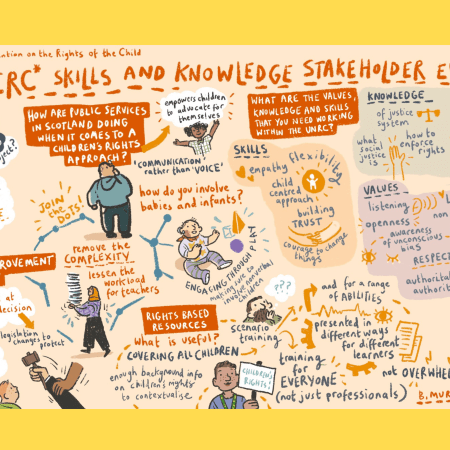 ention on the Rights of the Child
CRC* SKILLS AND KNOWLEDGE STAKEHOLDER E
HOW ARE PUBLIC SERVICES
IN SCOTLAND DOING
WHEN IT COMES TO A
CHILDREN'S RIGHTS
APPROACH?
empowers children
to advocate for
themselves
'COMMUNICATION
rather than 'VOICE'
how do you involve
babies and infants?
JOIN
the
DOTS!
remove the
COMPLEXITY
lessen the
workload
for teachers
ENGAGING THROUGH PLAY
making sure to
involve nonverbal
children
WHAT ARE THE VALUES,
KNOWLEDGE AND SKILLS
THAT YOU NEED WORKING
WITHIN THE UNRC?
SKILLS
empathy
flexibility
child
centred
approach
building
TRUST
courage to change
things
KNOWLEDGE
of justice
system
what
social
justice
is
how to
enforce
rights
VALUES
listening
non
openness
awareness
of unconscious
bias
RESPEC
authoritat
authorita
ROVEMENT
at
decision
legislation to
changes to protect
RIGHTS BASED
RESOURCES
what is useful?
COVERING ALL CHILDREN
enough background info
on children's rights
to contextualise
???
scenario
training
CHILDREN'S
RIGHTS!
training
for
EVERYONE
(not just professionals)
and for a range
of ABILITIES
presented in
different ways
for different
learners
not OVERWHEL
B. MUR